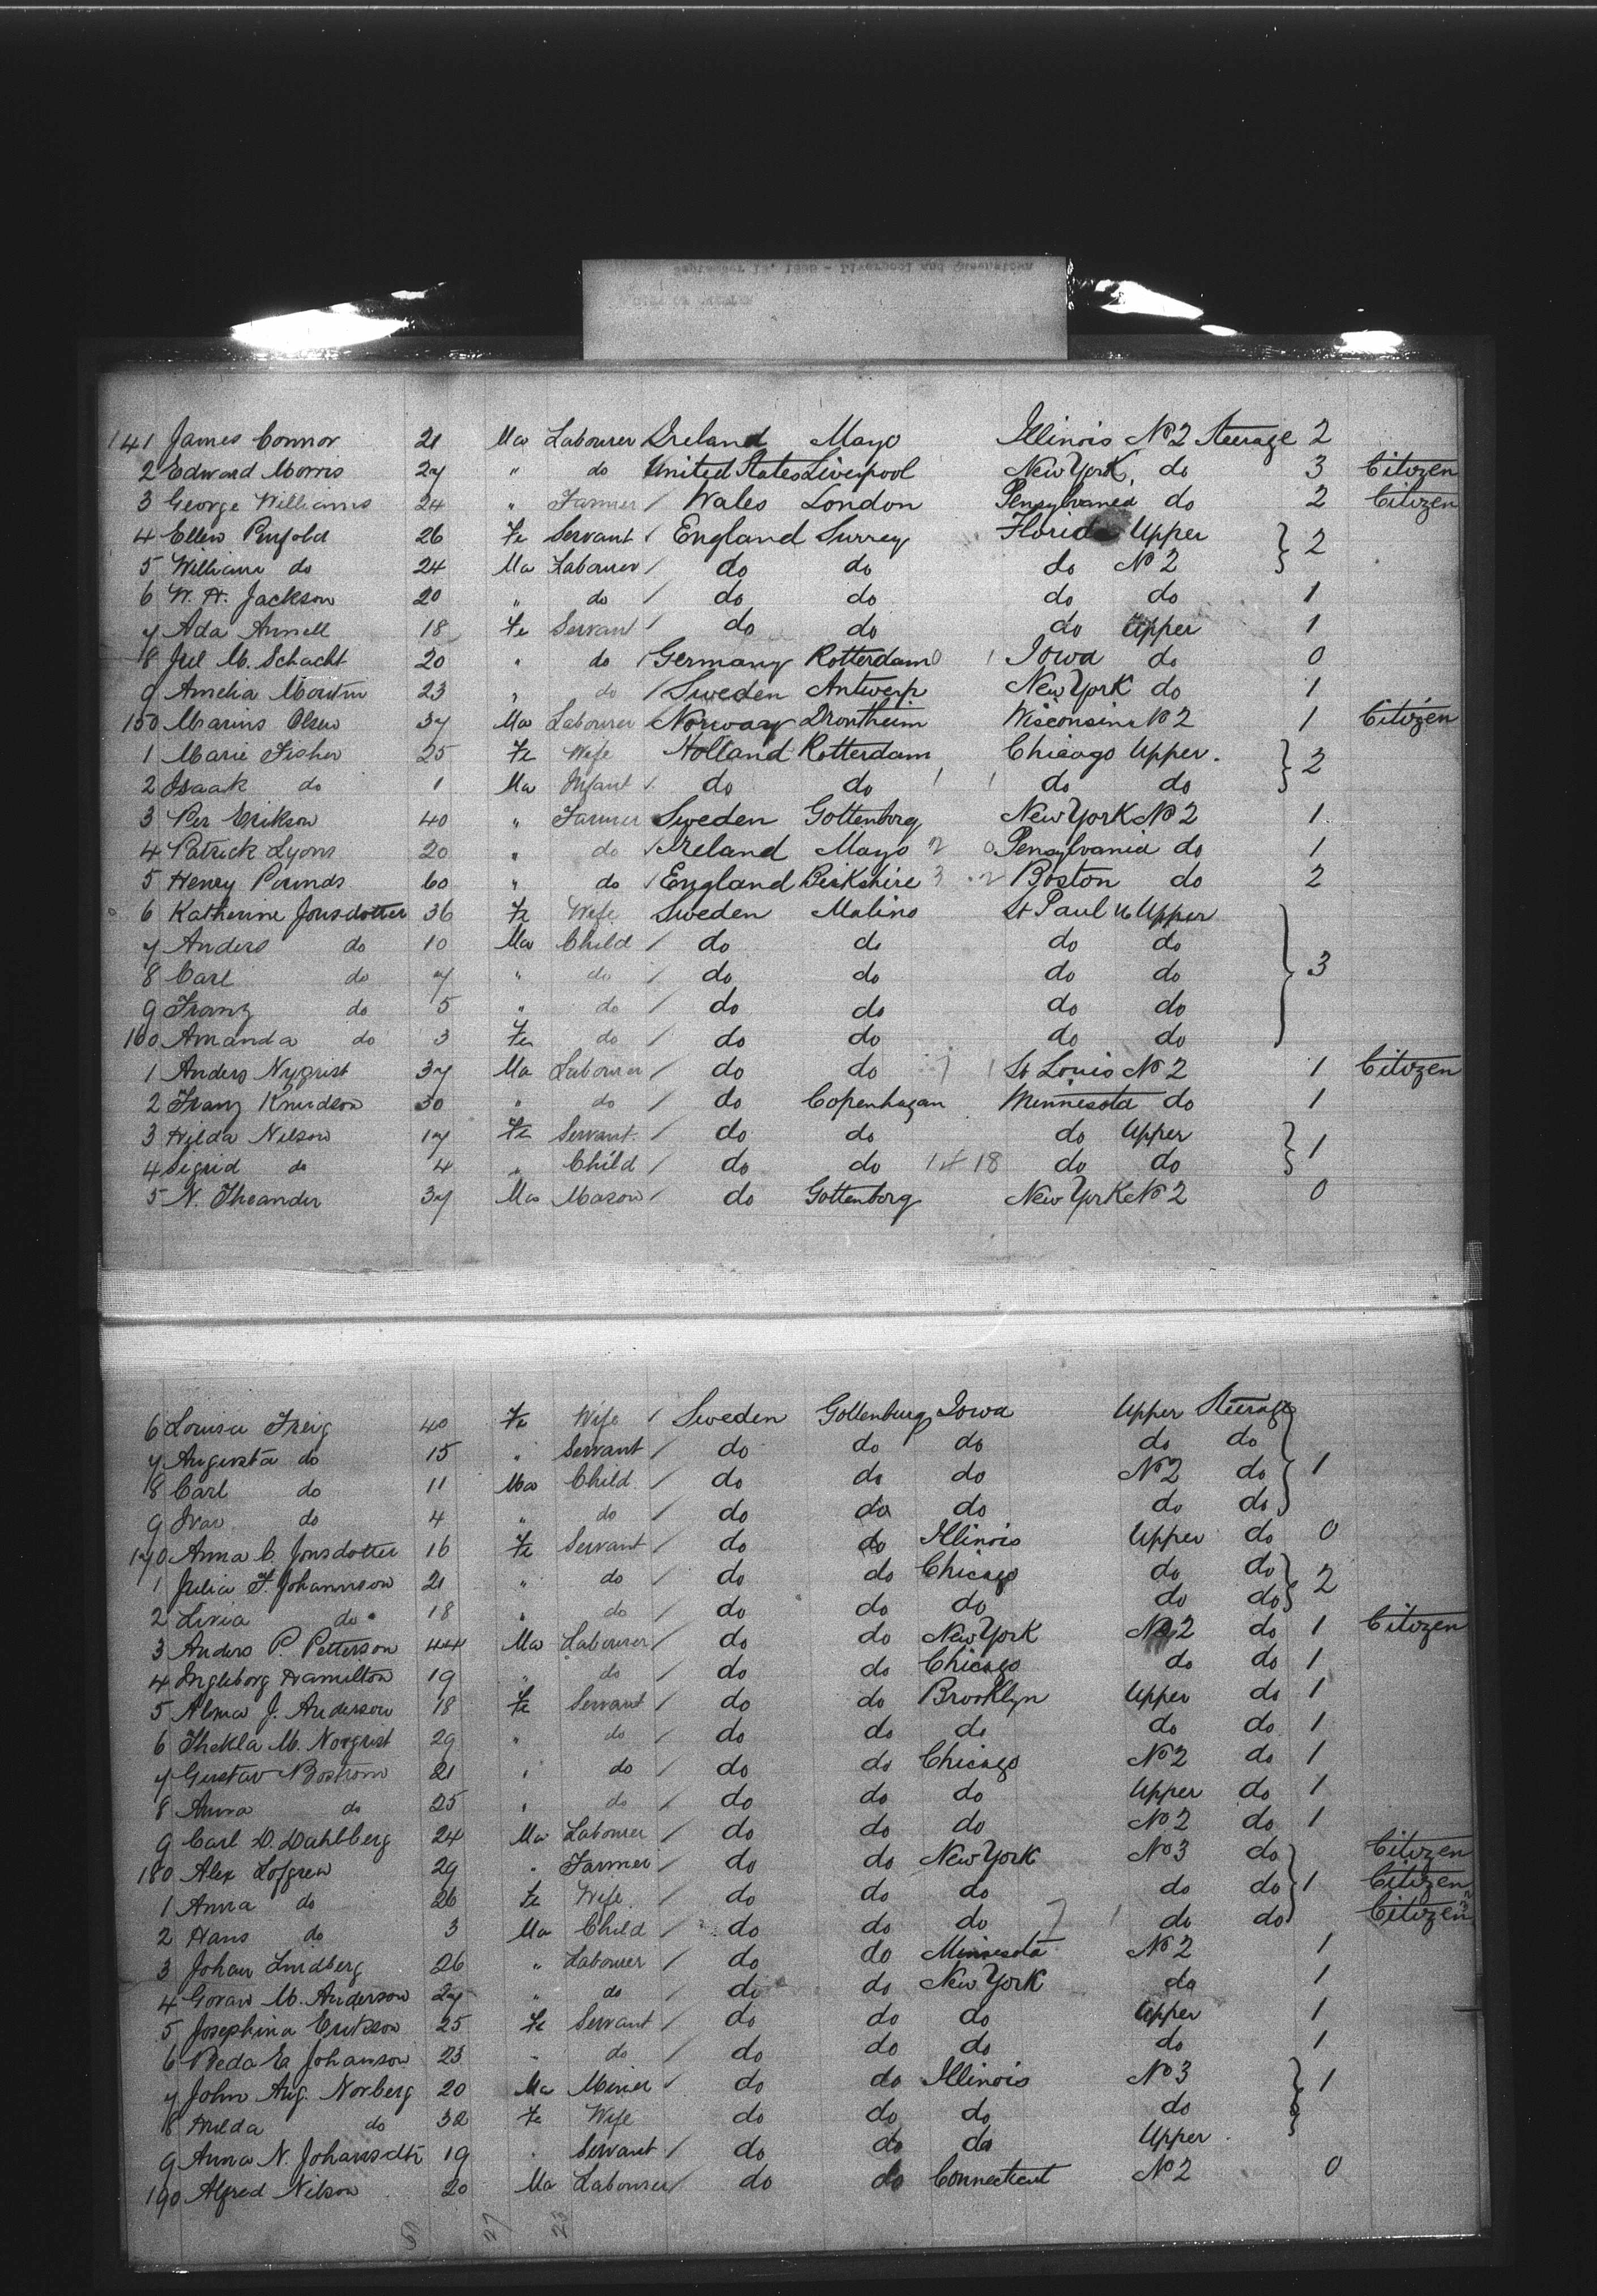 141 James Connor 21 Ma Labourer Ireland Mayo Illinois No 2 Steerage 2
2 Edward Morris 27 " do United States Liverpool New York, do 3 Citizen
3 George Williams 24 " Farmer / Wales London Pensylvanea do 2 Citizen
4 Ellen Penfold 26 Fe Servant / England Surrey Florida Upper } 2
5 William do 24 Ma Labourer / do do do No 2
6 W. H. Jackson 20 " do / do do do do 1
7 Ada Annell 18 Fe Servant / do do do Upper 1
8 Jul M. Schacht 20 " do / Germany Rotterdam 0 1 Iowa do 0
9 Amelia Martin 23 " do / Sweden Antwerp New York do 1
150 Marius Olsen 37 Ma Labourer / Norway Drontheim Wisconsin No 2 1 Citizen
1 Marie Fisher 25 Fe Wife Holland Rotterdam Chicago Upper. } 2
2 Isaak do 1 Ma Infant / do do 1 1 do do
3 Per Erikson 40 " Farmer Sweden Gottenborg New York No 2 1
4 Patrick Lyons 20 " do / Ireland Mayo 2 0 Pensylvania do 1
5 Henry Pounds 60 " do / England Berkshire 3 2 Boston do 2
6 Katherine Jonsdotter 36 Fe Wife Sweden Malino St Paul Upper
7 Anders do 10 Ma Child / do do do do
8 Carl do 7 " do / do do do do } 3
9 Franz do 5 " do / do do do do
160 Amanda do 3 Fe do / do do do do
1 Anders Nyqrist 37 Ma Labourer / do do 7 1 St Louis No 2 1 Citizen
2 Franz Knudson 30 " do / do Copenhagan Minnesota do 1
3 Hilda Nelson 17 Fe Servant / do do do Upper } 1
4 Sigrid do 4 " Child / do do 14 18 do do
5 N. Theander 37 Ma Mason / do Gottenborg New York No 2 0
6 Louisa Freig 40 Fe Wife / Sweden Gottenburg Iowa Upper Steerage
7 Augusta do 15 " Servant / do do do do do
8 Carl do 11 Ma Child / do do do No 2 do } 1
9 Ivar do 4 " do / do do do do do
170 Anna C. Jonsdotter 16 Fe Servant / do do Illinois Upper do 0
1 Julia F. Johannson 21 " do / do do Chicago do do } 2
2 Livia do 18 " do / do do do do do
3 Anders P. Petterson 44 Ma Labourer / do do New York No 2 do 1 Citizen
4 Ingleborg Hamilton 19 " do / do do Chicago do do 1
5 Alma J. Anderson 18 Fe Servant / do do Brooklyn Upper do 1
6 Thekla M. Norqrist 29 " do / do do do do do 1
7 Gustav Bostrom 21 " do / do do Chicago No 2 do 1
8 Anna do 25 " do / do do do Upper do 1
9 Carl D. Dahlberg 24 Ma Labourer / do do do No 2 do 1
180 Alex Lofgren 29 " Farmer / do do New York No 3 do Citizen
1 Anna do 26 Fe Wife / do do do do do } 1 Citizen
2 Hans do 3 Ma Child / do do do 7 1 do do Citizen
3 Johan Lindberg 26 " Labourer / do do Minnesota No 2 1
4 Goran M. Anderson 27 " do / do do New York do 1
5 Josephina Erikson 25 Fe Servant / do do do Upper 1
6 Beda E. Johanson 23 " do / do do do do 1
7 John Aug. Norberg 20 Ma Miner / do do Illinois No 3 } 1
8 Hulda do 32 Fe Wife do do do do
9 Anna N. Johansdtr 19 " Servant / do do do Upper
190 Alfred Nilson 20 Ma Labourer / do do Connecticut No 2 0
27 23